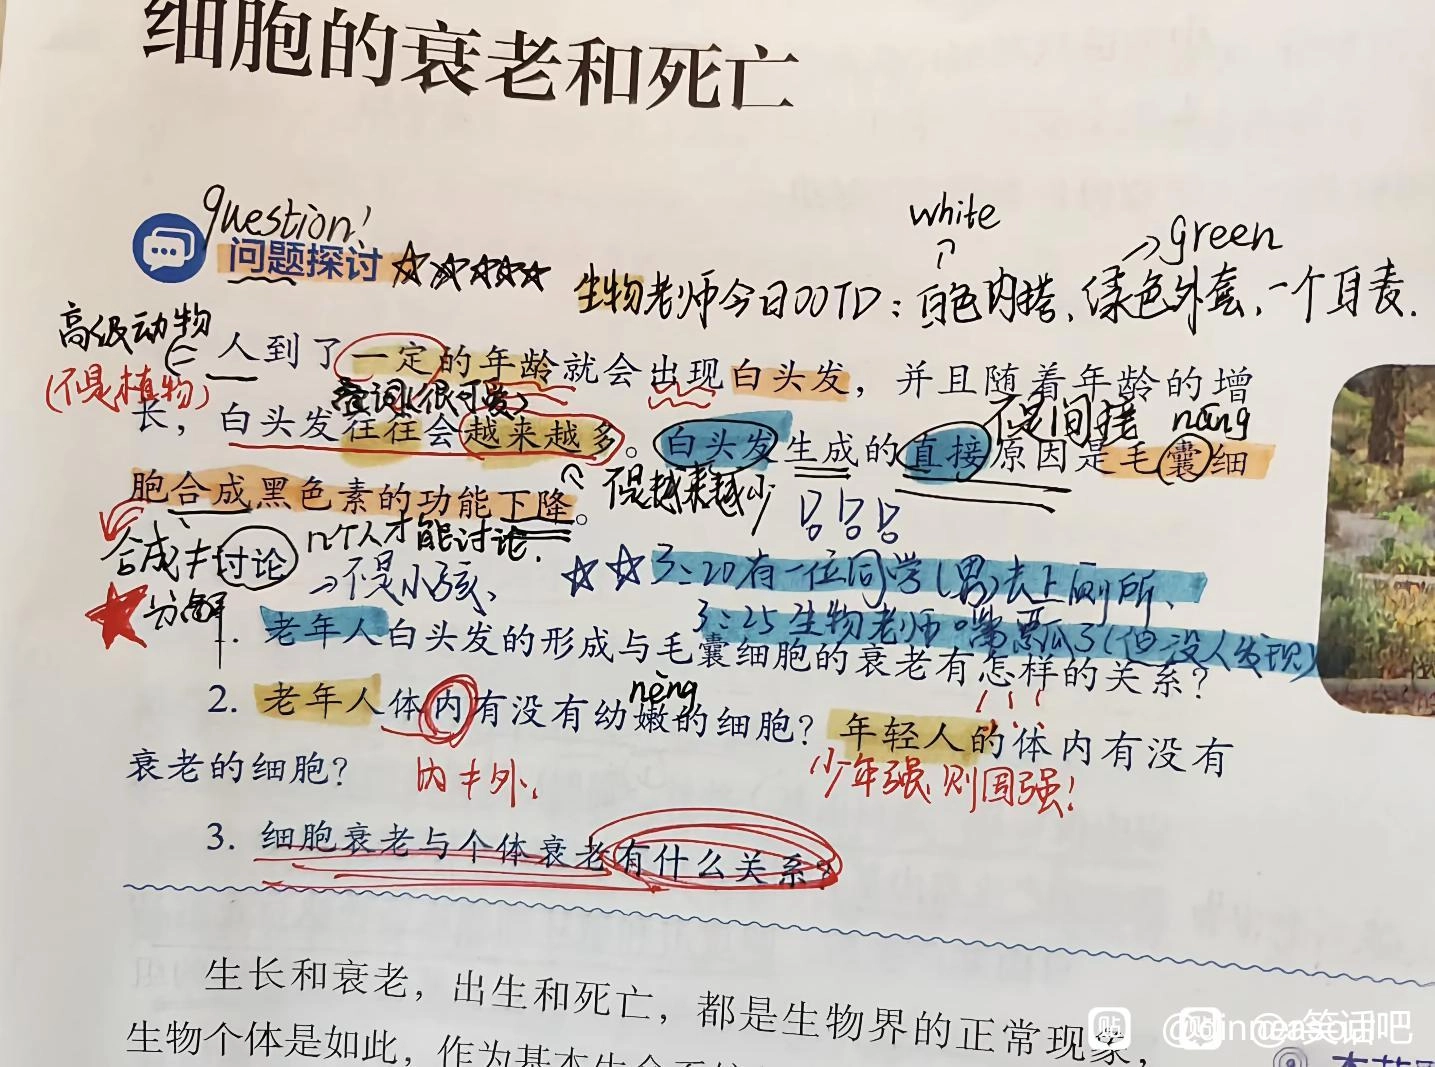 细胞的衰老和死亡
question!
问题探讨
white
green
生物老师今日OOTD：白色内搭、绿色外套、一个耳表.
高级动物
(不是植物)
人到了一定的年龄就会出现白头发，并且随着年龄的增
(很可爱)
不是间接
nāng
长，白头发往往会越来越多。白头发生成的直接原因是毛囊细
不是越来越少
胞合成黑色素的功能下降。
合成≠分解
讨论
n个人才能讨论.
→不是小孩、
3:20有一位同学(男)去上厕所、
3:25生物老师嘴瓢了(但没人发现)
1. 老年人白头发的形成与毛囊细胞的衰老有怎样的关系？
nèng
2. 老年人体内有没有幼嫩的细胞？年轻人的体内有没有
衰老的细胞？
内≠外、
少年强,则国强!
3. 细胞衰老与个体衰老有什么关系？
生长和衰老，出生和死亡，都是生物界的正常现象，
生物个体是如此，作为基本生命系统
@笑话吧